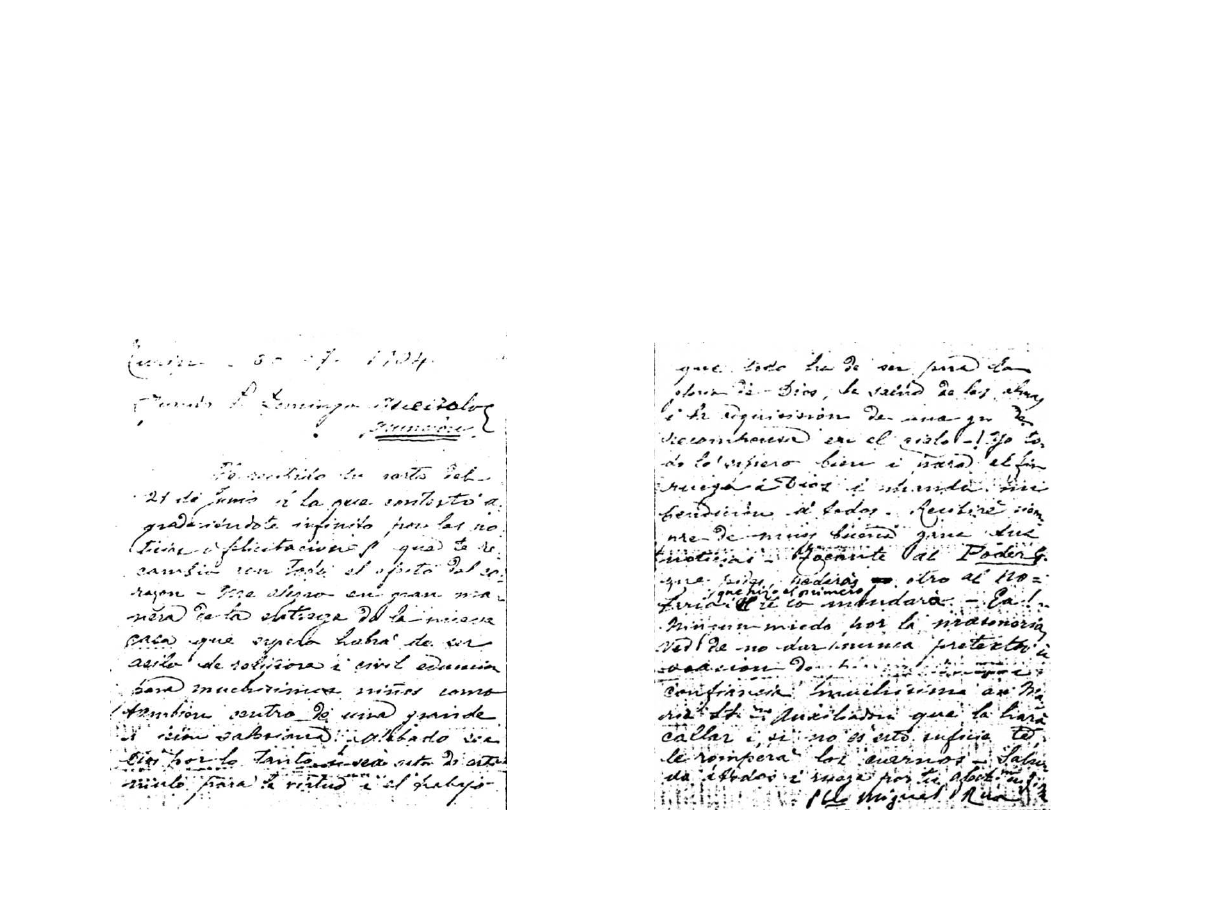 Turin - 30 - 7 - 1904
Domingo
Asunción
He recibido tu carta del
21 de Junio i la que contesto a-
gradeciendote infinito por las no-
ticias i felicitaciones que te re
cambio con todo el afecto del co-
razon - Me alegro en gran ma-
nera de la entrega de la nueva
casa que espero habrá de ser
asilo de religiosa i civil
para muchisimos niños como
tambien centro de una grande
Salesiana alabado sea
Dios por lo tanto i sea esto de
para la virtud i el trabajo
que todo ha de ser para la
gloria de Dios, la salud de las almas
i la de una
recompensa en el cielo - Yo to-
do lo espero bien i para el fin
ruego á Dios i mando mi
bendicion á todos. Recibiré siem
pre de muy buena gana tus
noticias - Tocante al Poder
que pides otro al No-
que hizo el primero
mandara -
Ningun miedo por la masoneria
de no dar nunca pretexto
ocasion de
confianza muchisima en Ma-
ria Auxiliadora que la hará
callar i si no es esto
le romperá los cuernos - Salu
da á todos i ruega por tu
Miguel Rua